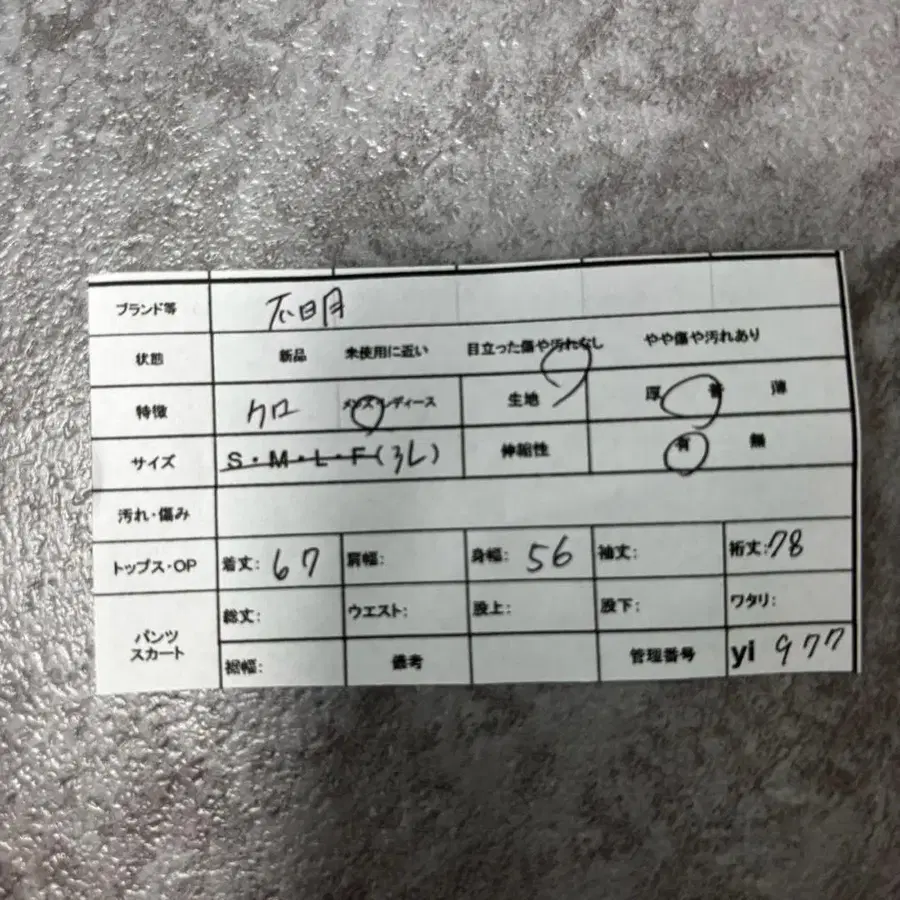 ブランド等 不明
状態 新品 未使用に近い 目立った傷や汚れなし やや傷や汚れあり
特徴 クロ メンズ レディース 生地 厚 普 薄
サイズ S・M・L・F(3L) 伸縮性 有 無
汚れ・傷み
トップス・OP 着丈: 67 肩幅: 身幅: 56 袖丈: 裄丈: 78
パンツ スカート 総丈: ウエスト: 股上: 股下: ワタリ:
裾幅: 備考 管理番号 yi 977